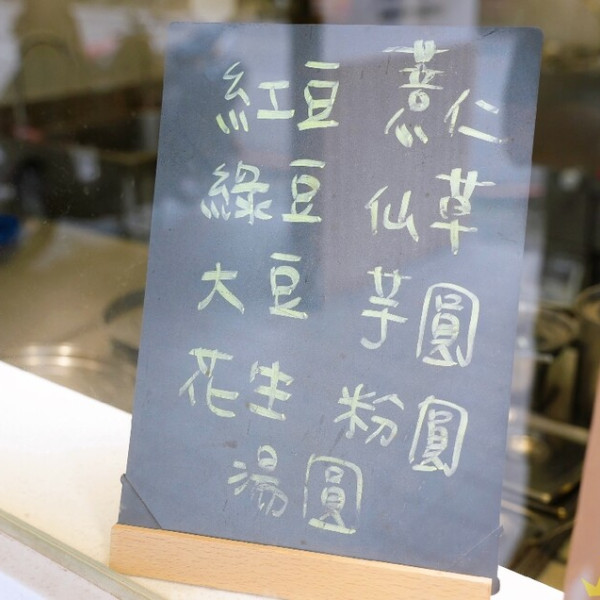 紅豆 薏仁
綠豆 仙草
大豆 芋圓
花生 粉圓
湯圓